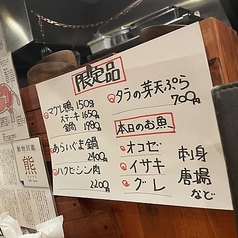 限定品
マグレ鴨 150g
ステーキ 1650円
鍋 1980円
あらいぐま鍋
2400円
ハクビシン肉
2200円
タラの芽天ぷら
700円
本日のお魚
オコゼ
イサキ
グレ
刺身
唐揚
など
熊